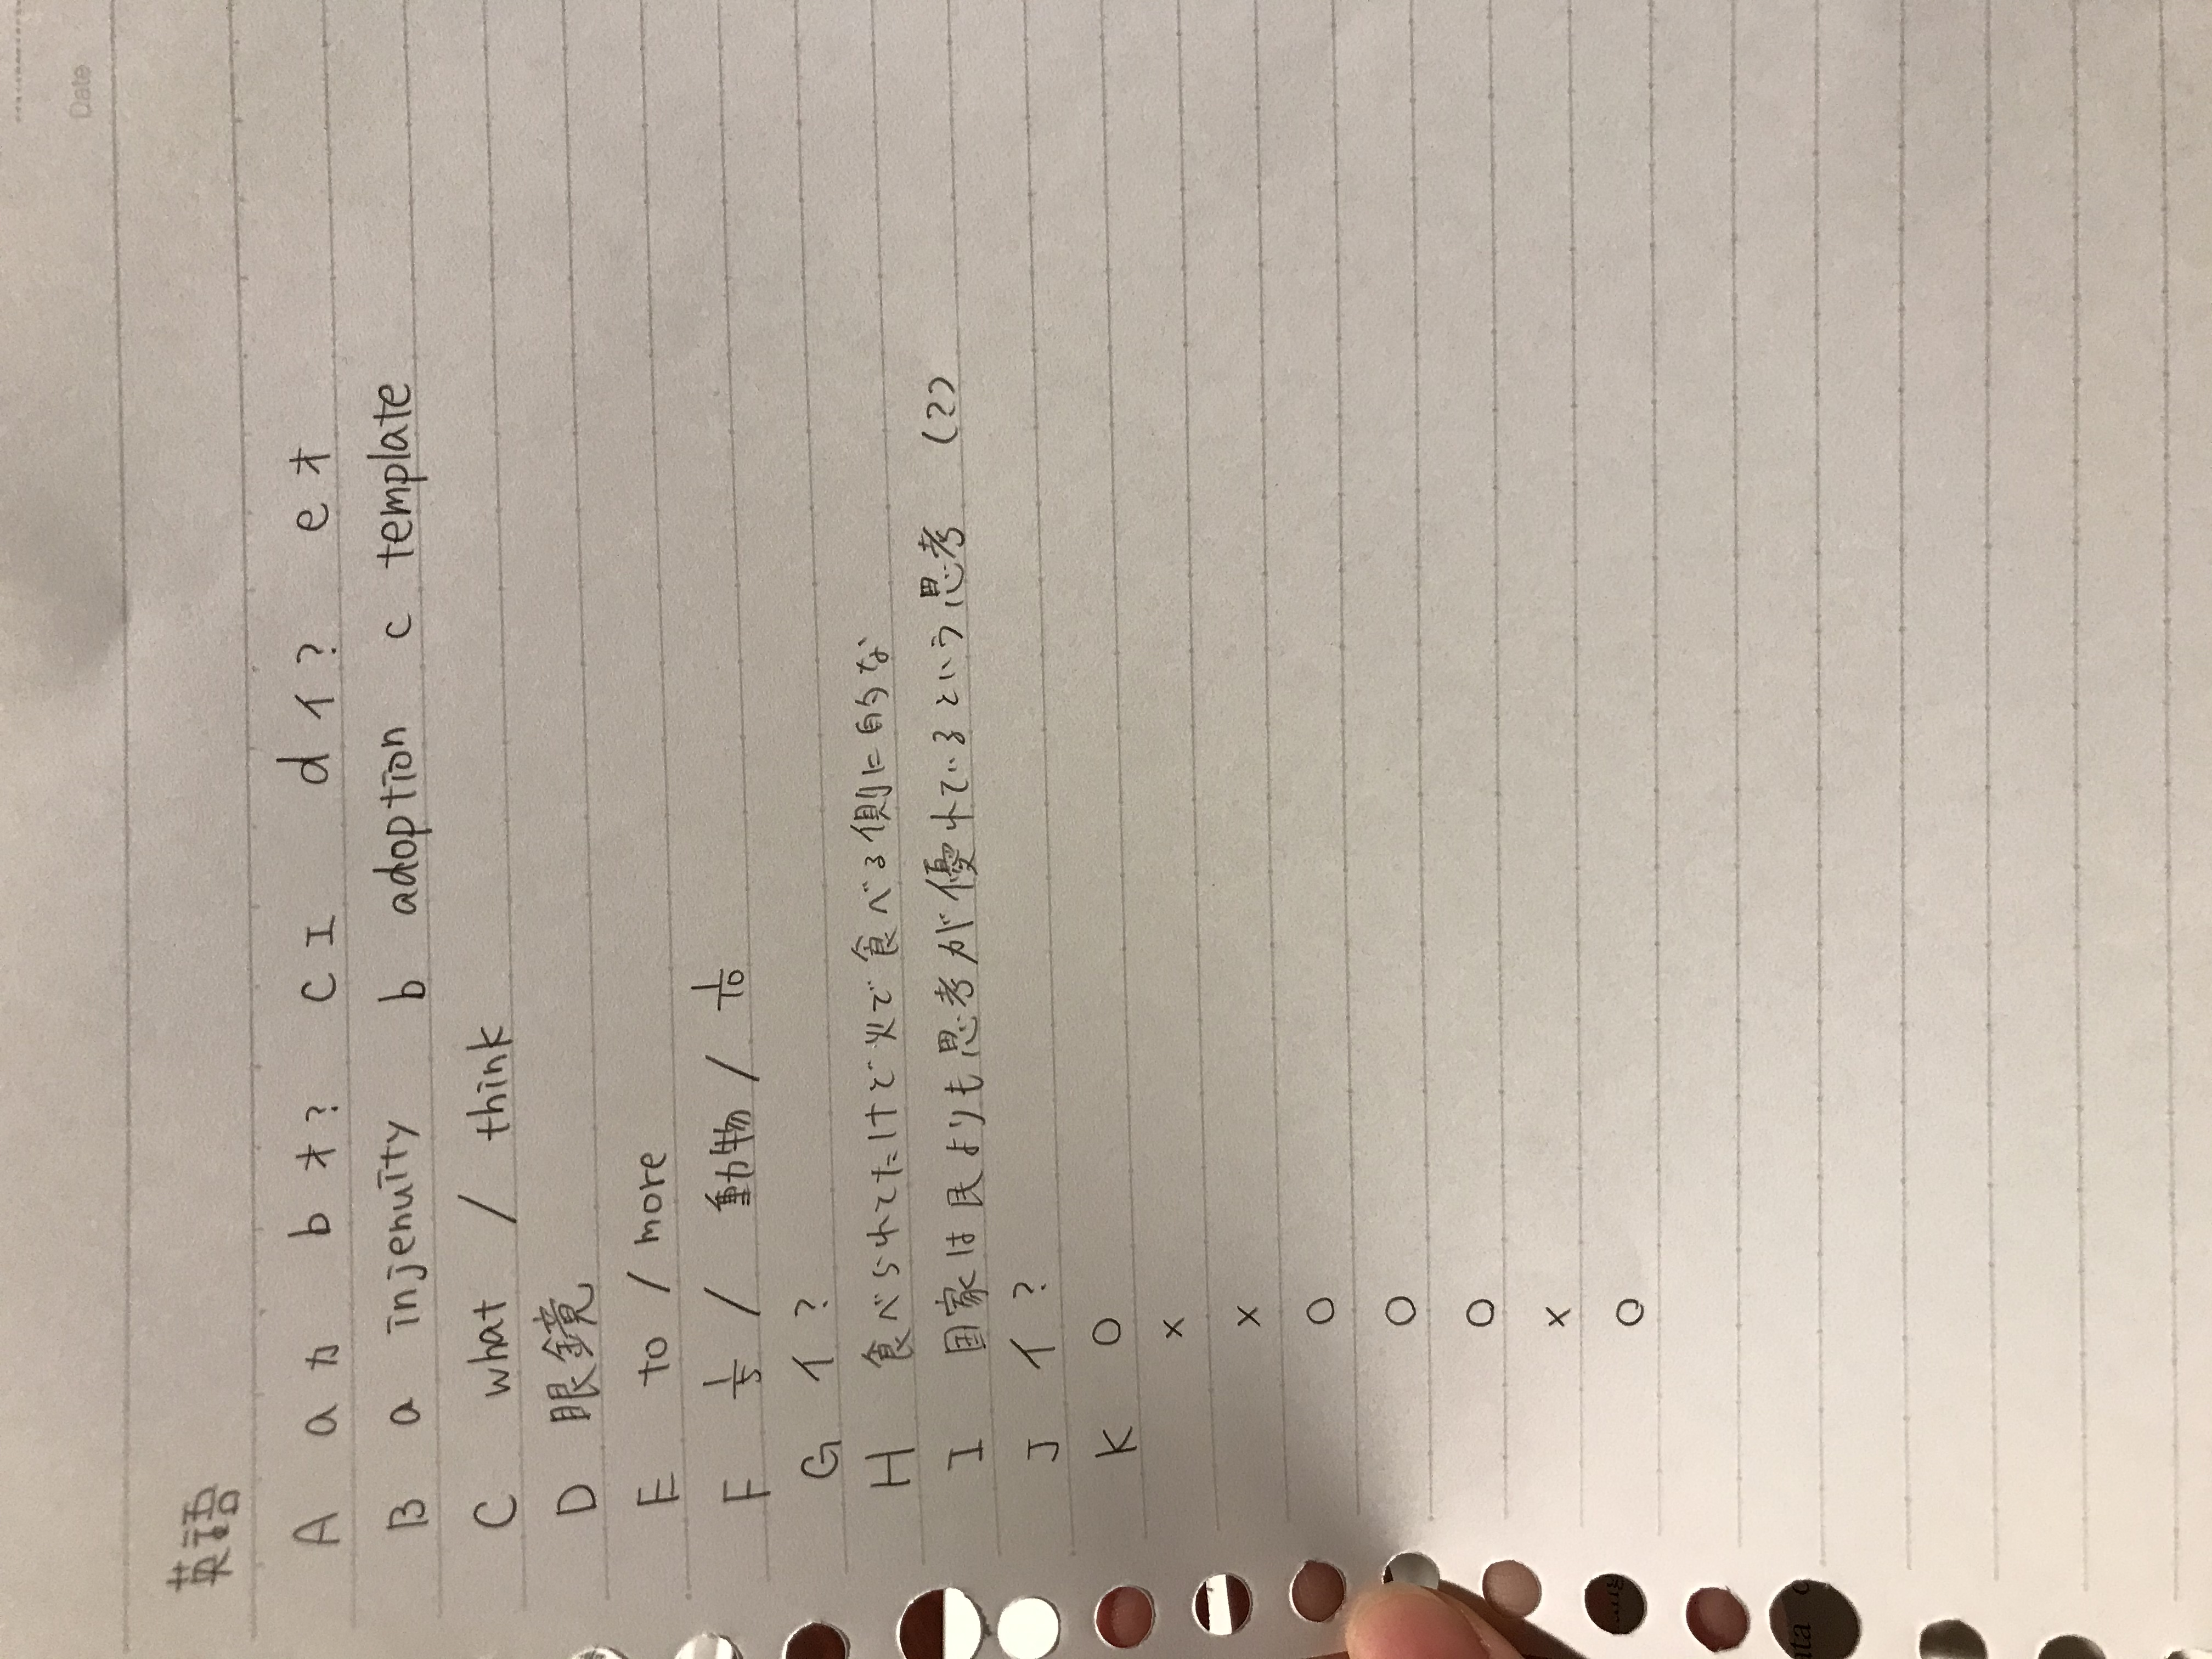 Date
英語
A a カ b オ? c エ d イ? e オ
B a injenuity b adoption c template
C what / think
D 眼鏡
E to / more
F 1/5 / 動物 / 1/10
G イ?
H 食べられてたけど火で食べる側に的な
I 国家は民よりも思考が優れているという思考 (2)
J イ?
K ○
×
×
○
○
○
×
○